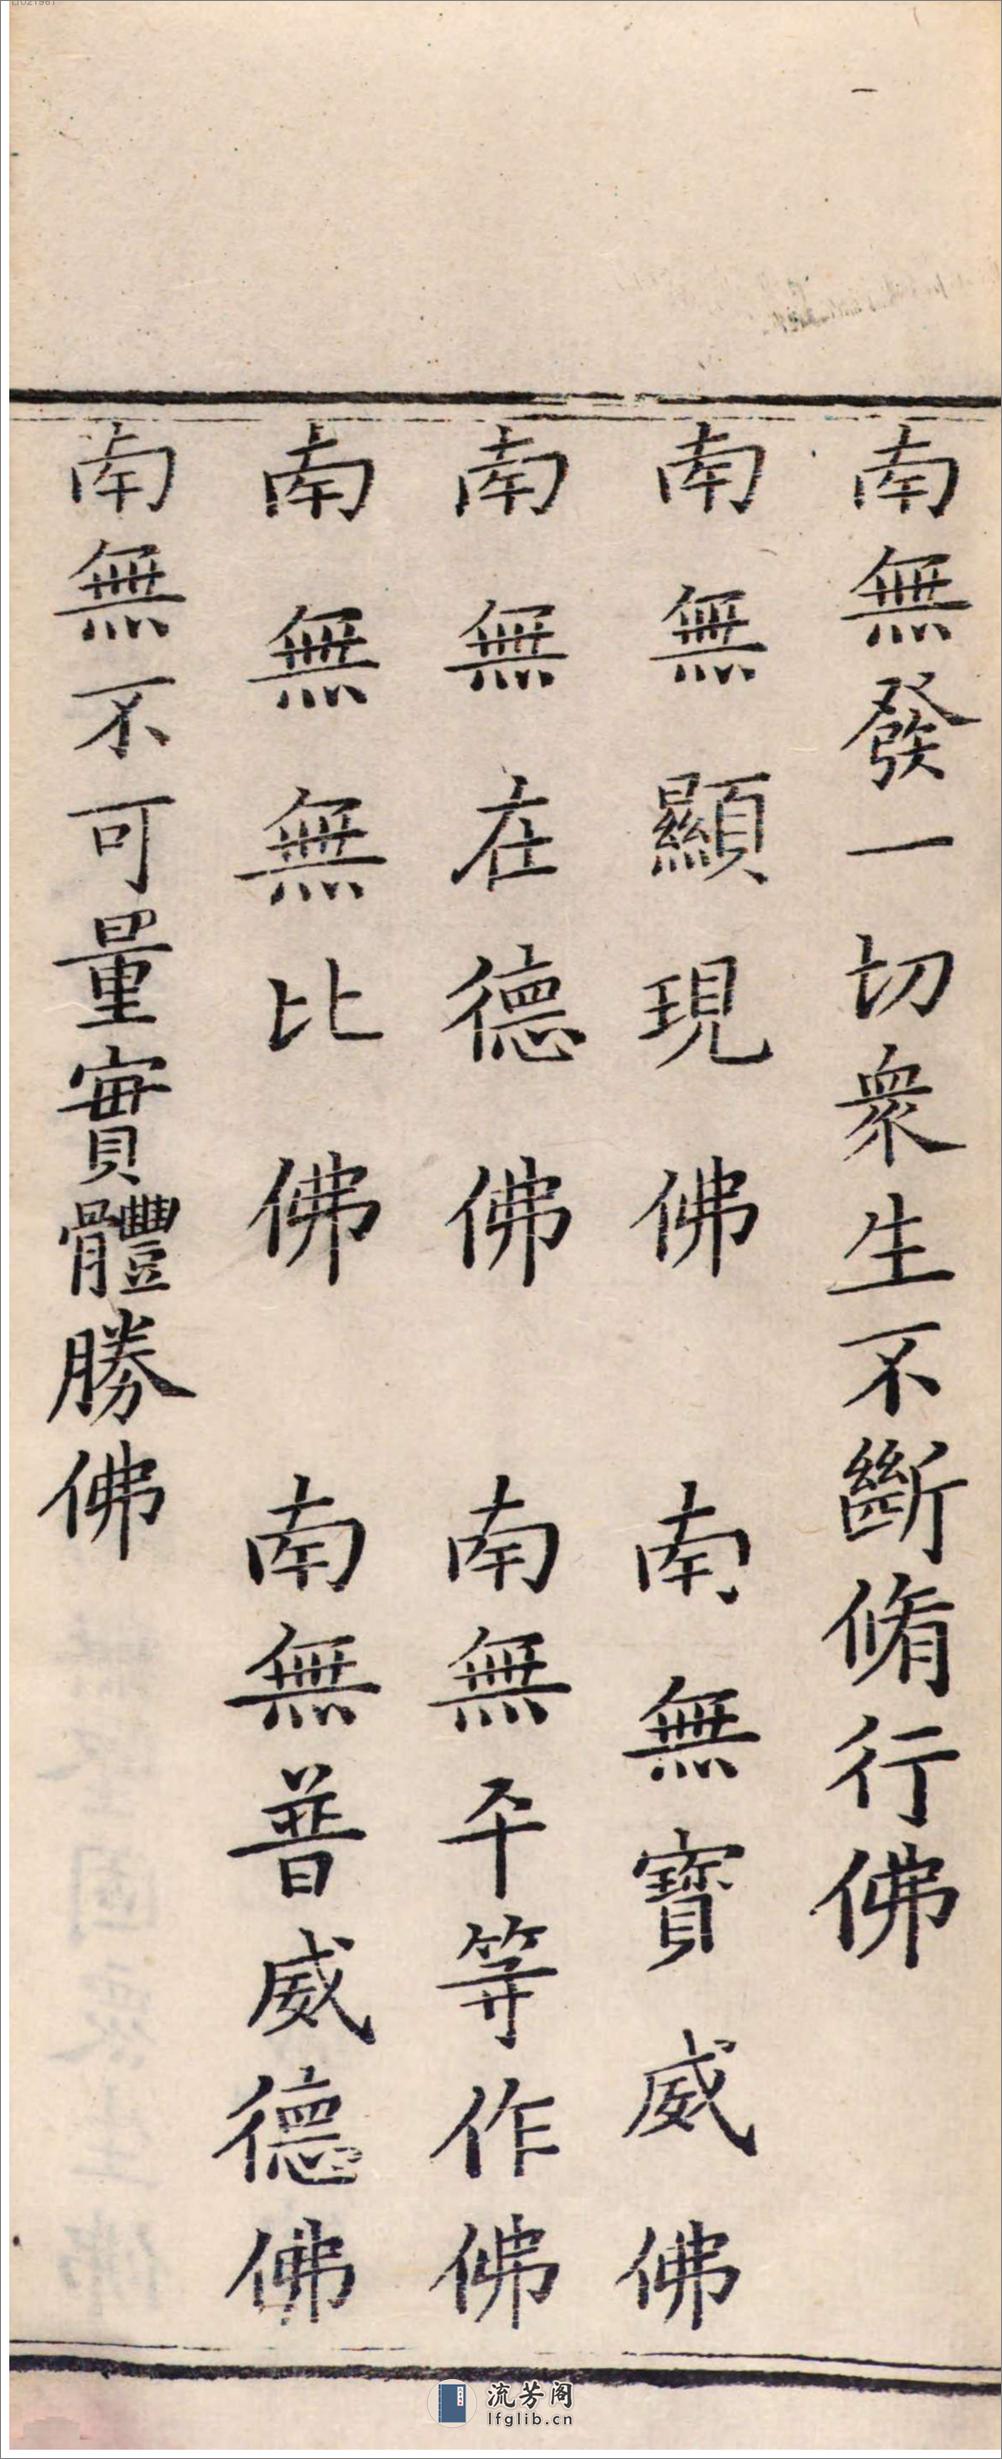 南無發一切衆生不斷脩行佛
南無顯現佛 南無寶威佛
南無在德佛 南無平等作佛
南無無比佛 南無普威德佛
南無不可量實體勝佛
流芳阁
lfglib.cn